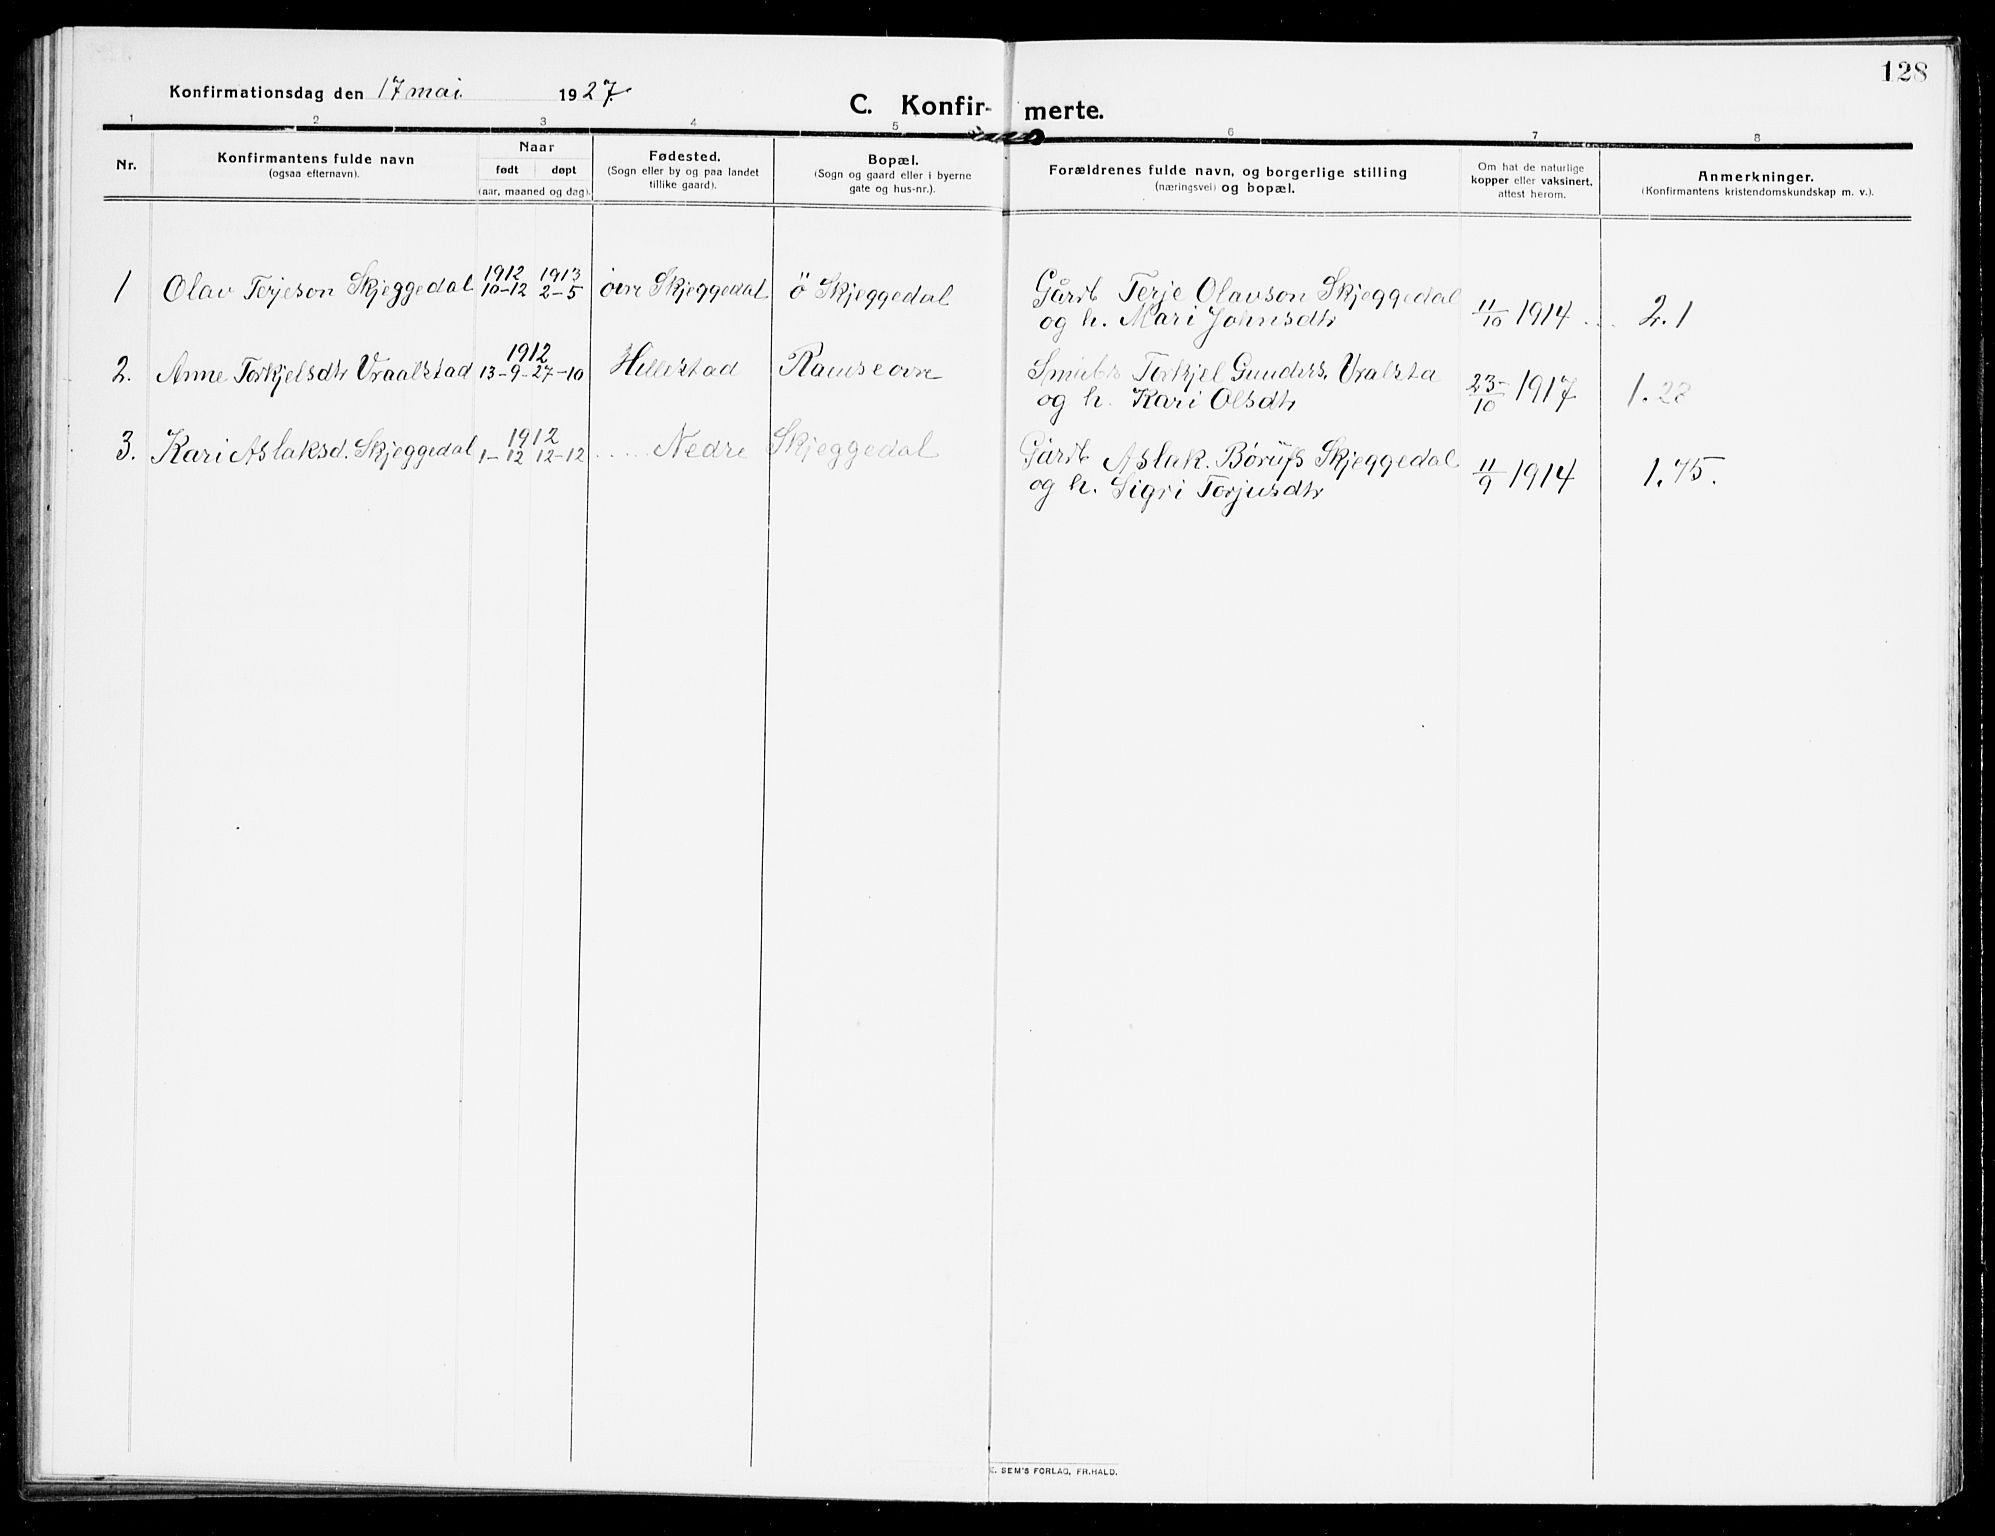 128
Konfirmationsdag den 17 mai 1927.
C. Konfir- merte.
1 2 3 4 5 6 7 8
Nr.
Konfirmantens fulde navn
(ogsaa efternavn).
Naar
født døpt
(aar, maaned og dag).
Fødested.
(Sogn eller by og paa landet
tillike gaard).
Bopæl.
(Sogn og gaard eller i byerne
gate og hus-nr.).
Forældrenes fulde navn, og borgerlige stilling
(næringsvei) og bopæl.
Om hat de naturlige
kopper eller vaksinert,
attest herom.
Anmerkninger.
(Konfirmantens kristendomskundskap m. v.).
1 Olav Terjeson Skjeggedal 1912 10-12 1913 2-5 øvre Skjeggedal ö Skjeggedal Gårdb Terje Olavson Skjeggedal 11/10 1914 .... 2.1
og h. Mari Johnsdtr
2. Anne Torkjelsdtr Vraalstad 1912 13-9-27-10 Hillestad Rause øvre Småbr Torkjel Gunders. Vralsta 23/10 1917 1.28
og h. Kari Olsdtr
3. Kari Aslaksd. Skjeggedal 1912 1-12 12-12 .... Nedre Skjeggedal Gårdb Aslak Børufs Skjeggedal 11/9 1914 1.75.
og h. Sigri Torjusdtr
E. SEM'S FORLAG, FR.HALD.